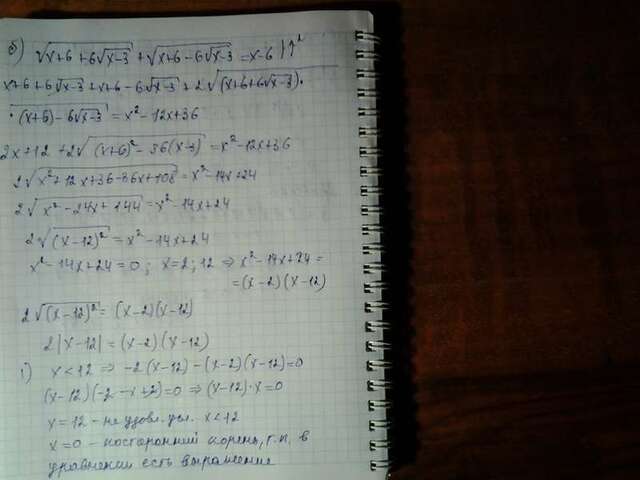 б) √(x+6+6√(x-3)) + √(x+6-6√(x-3)) = x-6 |↑²
x+6+6√(x-3) + x+6-6√(x-3) + 2√((x+6+6√(x-3))·
·(x+6)-6√(x-3)) = x²-12x+36
2x+12+2√((x+6)²-36(x-3)) = x²-12x+36
2√(x²+12x+36-36x+108) = x²-14x+24
2√(x²-24x+144) = x²-14x+24
2√((x-12)²) = x²-14x+24
x²-14x+24=0; x=2; 12 ⇒ x²-14x+24=
=(x-2)(x-12)
2√((x-12)²) = (x-2)(x-12)
2|x-12| = (x-2)(x-12)
1) x<12 ⇒ -2(x-12)-(x-2)(x-12)=0
(x-12)(-2-x+2)=0 ⇒ (x-12)·x=0
x=12 - не удовл. усл. x<12
x=0 - посторонний корень, т.к. в
уравнении есть выражения